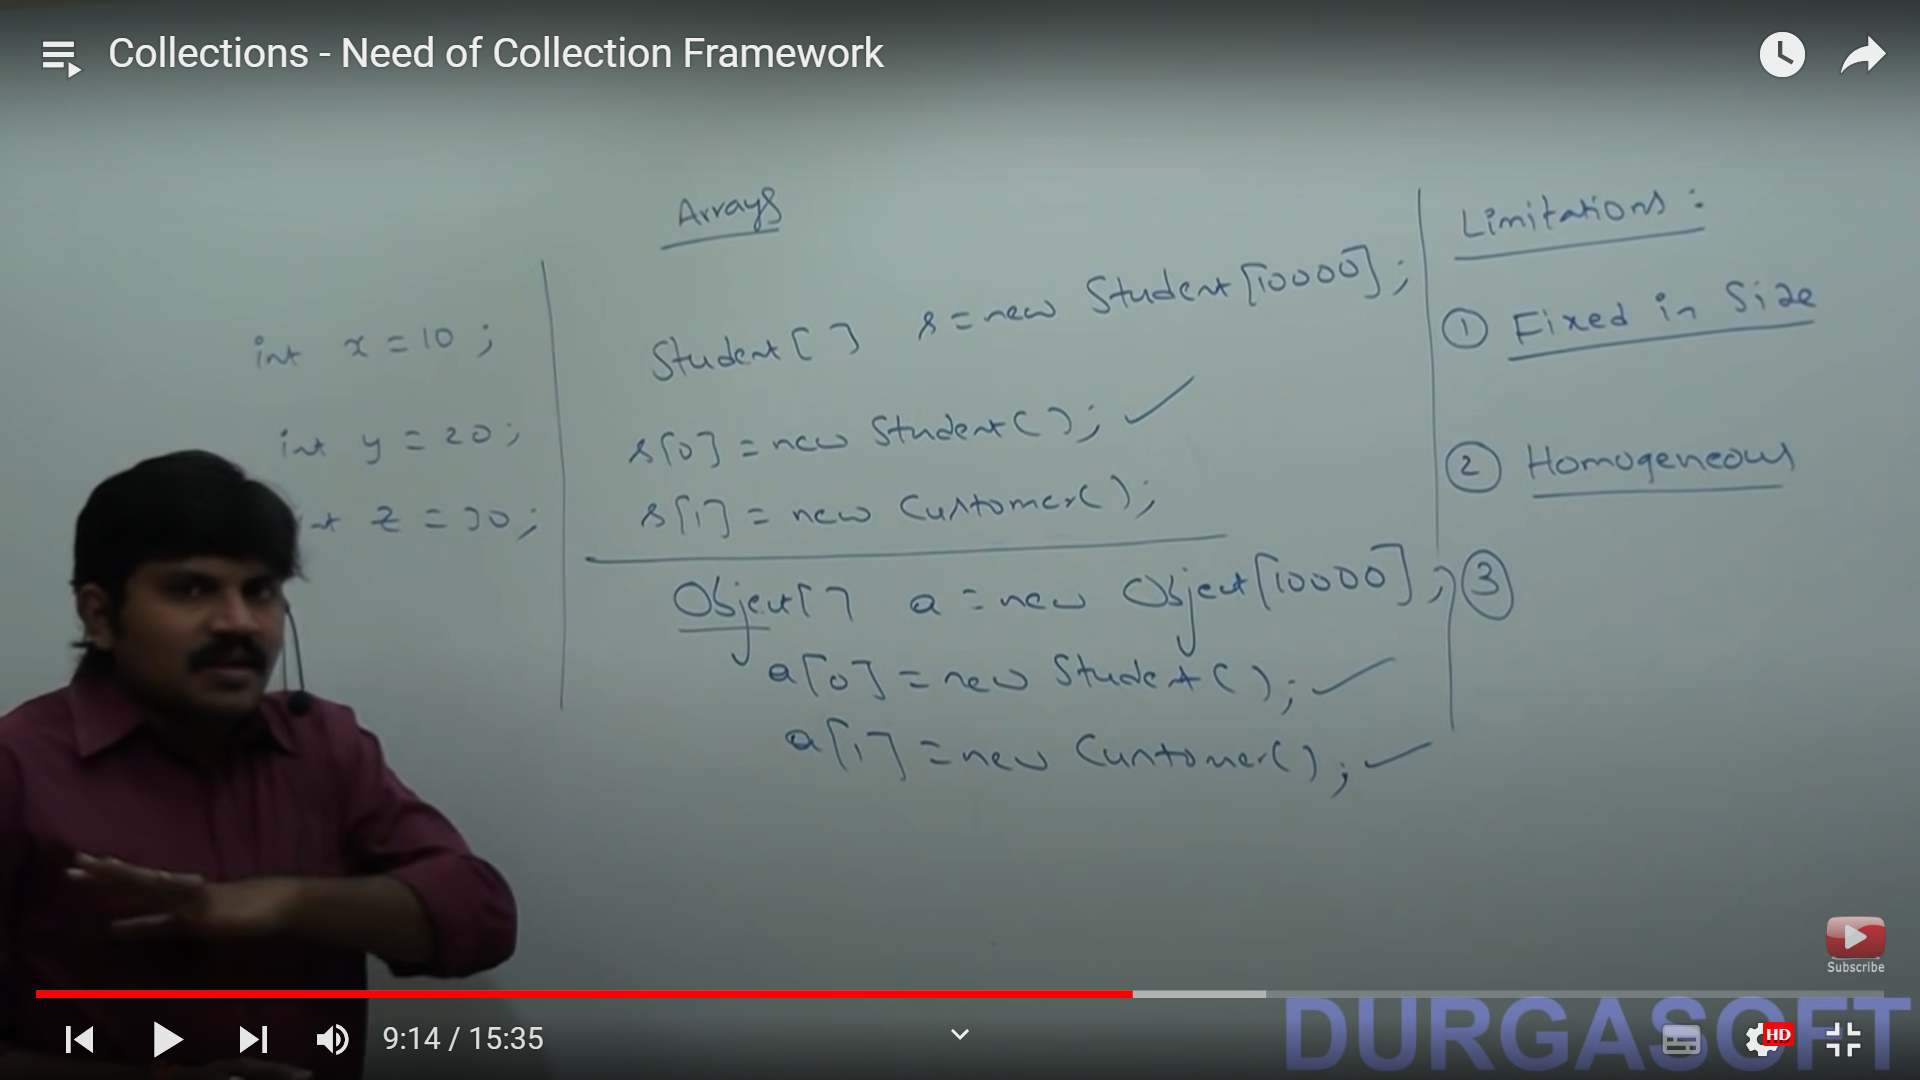 Collections - Need of Collection Framework
Arrays
int x = 10 ;
int y = 20 ;
int z = 30 ;
Student [ ] s = new Student [10000] ;
s[0] = new Student ( ) ;
s[1] = new Customer ( ) ;
Object [ ] a = new Object [10000] ;
a[0] = new Student ( ) ;
a[1] = new Customer ( ) ;
Limitations :
① Fixed in Size
② Homogeneous
③
Subscribe
9:14 / 15:35
HD
DURGASOFT